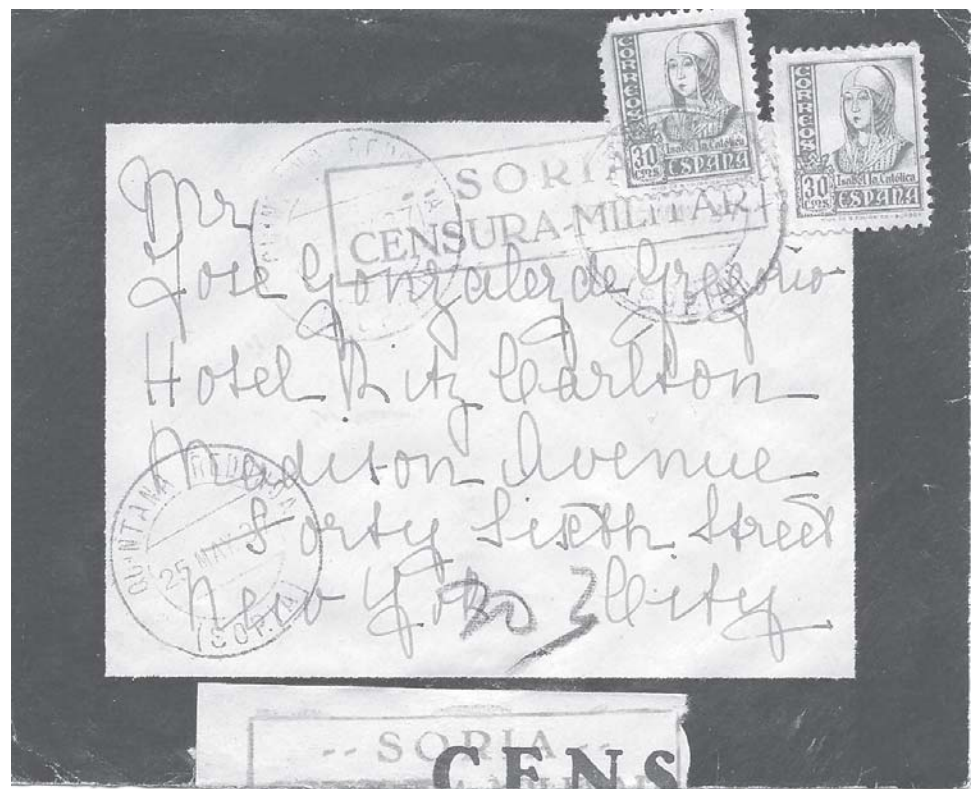 CORREOS
30 CTMS
Isabel la Católica
ESPAÑA
CORREOS
30 CTMS
Isabel la Católica
ESPAÑA
-- SORIA
CENSURA-MILITAR
Mr
Jose Gonzalez de Gregorio
Hotel Ritz Carlton
Madison Avenue
Forty Sixth Street
New York City
30
QUINTANA REDONDA
25 MAY
(SORIA)
-- SORIA --
CENS